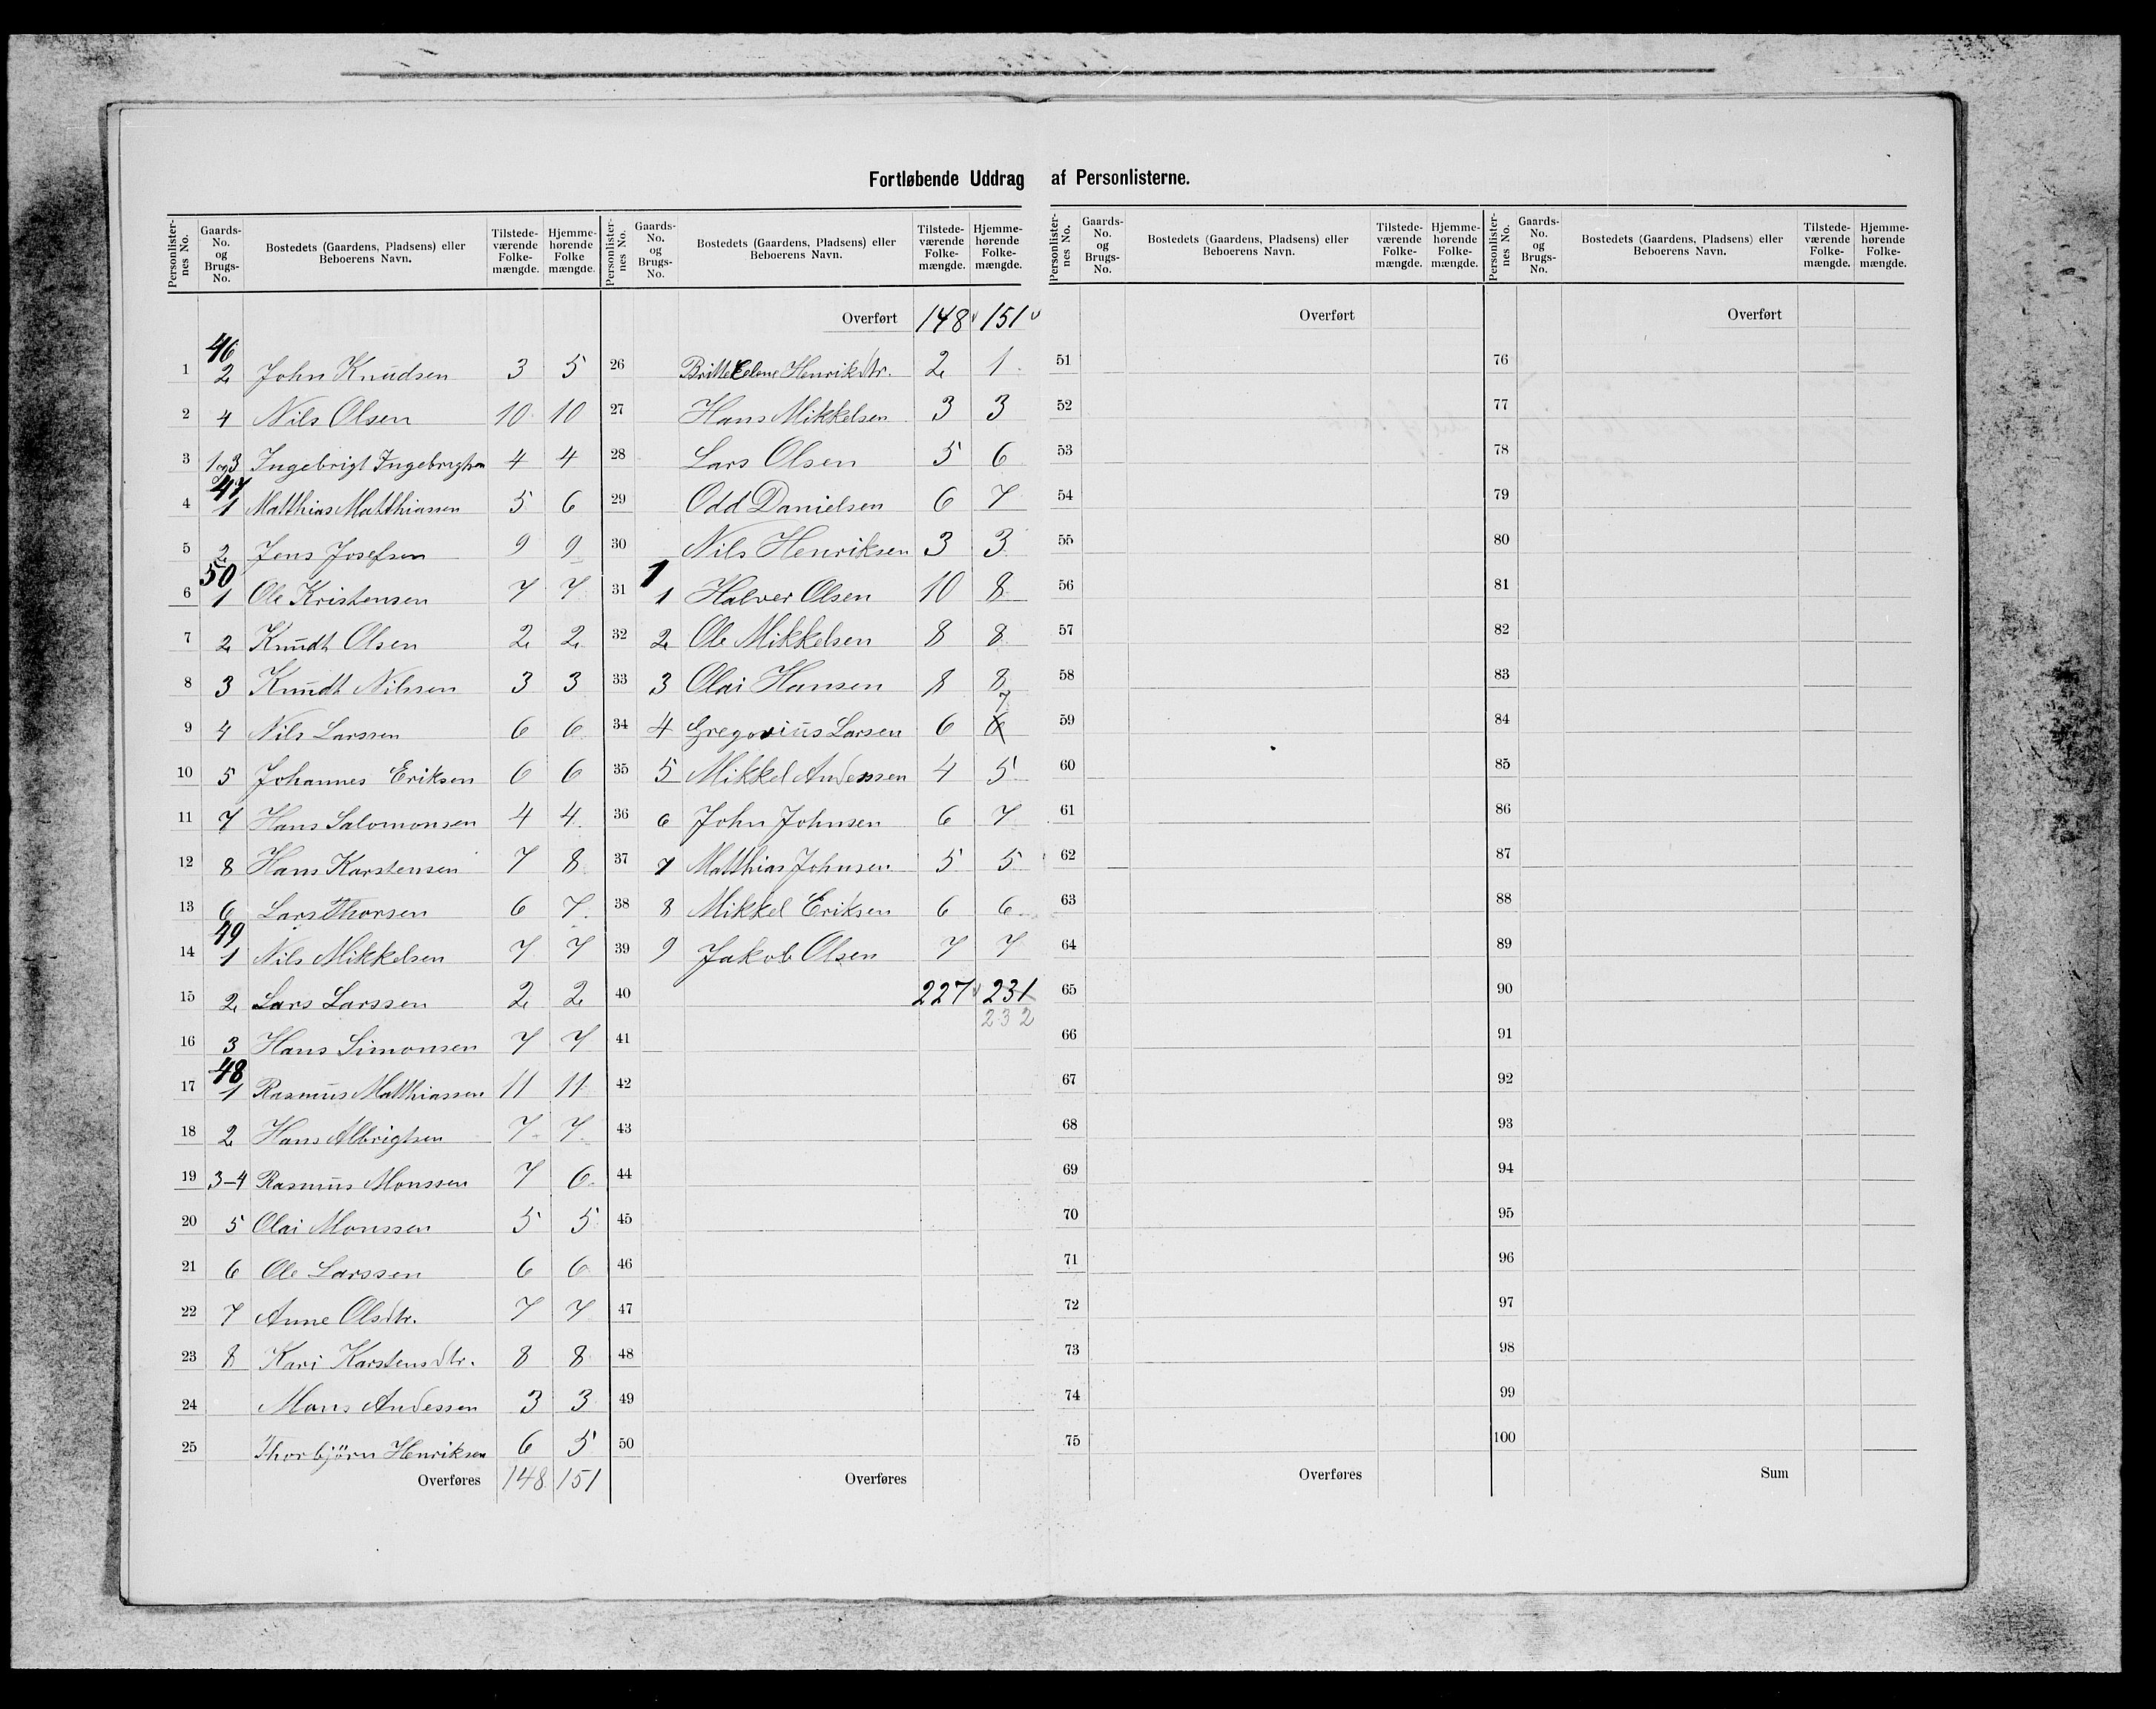 Fortløbende Uddrag af Personlisterne.
Personlister-nes No. | Gaards-No. og Brugs-No. | Bostedets (Gaardens, Pladsens) eller Beboerens Navn. | Tilstede-værende Folke-mængde. | Hjemme-hørende Folke mængde.
46
1 2 John Knudsen 3 5
2 4 Nils Olsen 10 10
3 1og3 Ingebrigt Ingebrigtsen 4 4
47
4 1 Matthias Matthiassen 5 6
5 2 Jens Josefsen 9 9
50
6 1 Ole Kristensen 7 7
7 2 Knudt Olsen 2 2
8 3 Knudt Nilssen 3 3
9 4 Nils Larssen 6 6
10 5 Johannes Eriksen 6 6
11 7 Hans Salomonsen 4 4
12 8 Hans Karstensen 7 8
13 6 Lars Thorsen 6 7
49
14 1 Nils Mikkelsen 7 7
15 2 Lars Larssen 2 2
16 3 Hans Simonsen 7 7
48
17 1 Rasmus Matthiassen 11 11
18 2 Hans Albrigtsen 7 7
19 3-4 Rasmus Monssen 7 6
20 5 Olai Monssen 5 5
21 6 Ole Larssen 6 6
22 7 Anne Olsdtr. 7 7
23 8 Kari Karstensdtr. 8 8
24 Mons Andessen 3 3
25 Thorbjörn Henriksen 6 5
Overføres 148 151
Personlister-nes No. | Gaards-No. og Brugs-No. | Bostedets (Gaardens, Pladsens) eller Beboerens Navn. | Tilstede-værende Folke-mængde. | Hjemme-hørende Folke-mængde.
Overført 148 151
26 Britte Elene Henrikdtr. 2 1
27 Hans Mikkelsen 3 3
28 Lars Olsen 5 6
29 Odd Danielsen 6 7
30 Nils Henriksen 3 3
1
31 1 Halver Olsen 10 8
32 2 Ole Mikkelsen 8 8
33 3 Olai Hansen 8 8
7
34 4 Gregorius Larsen 6 6
35 5 Mikkel Andenssen 4 5
36 6 John Johnsen 6 7
37 7 Matthias Johnsen 5 5
38 8 Mikkel Eriksen 6 6
39 9 Jakob Olsen 7 7
40 227 231
232
41
42
43
44
45
46
47
48
49
50
Overføres
Personlister-nes No. | Gaards-No. og Brugs-No. | Bostedets (Gaardens, Pladsens) eller Beboerens Navn. | Tilstede-værende Folke-mængde. | Hjemme-hørende Folke-mængde.
Overført
51
52
53
54
55
56
57
58
59
60
61
62
63
64
65
66
67
68
69
70
71
72
73
74
75
Overføres
Personlister-nes No. | Gaards-No. og Brugs-No. | Bostedets (Gaardens, Pladsens) eller Beboerens Navn. | Tilstede-værende Folke-mængde. | Hjemme-hørende Folke-mængde.
Overført
76
77
78
79
80
81
82
83
84
85
86
87
88
89
90
91
92
93
94
95
96
97
98
99
100
Sum